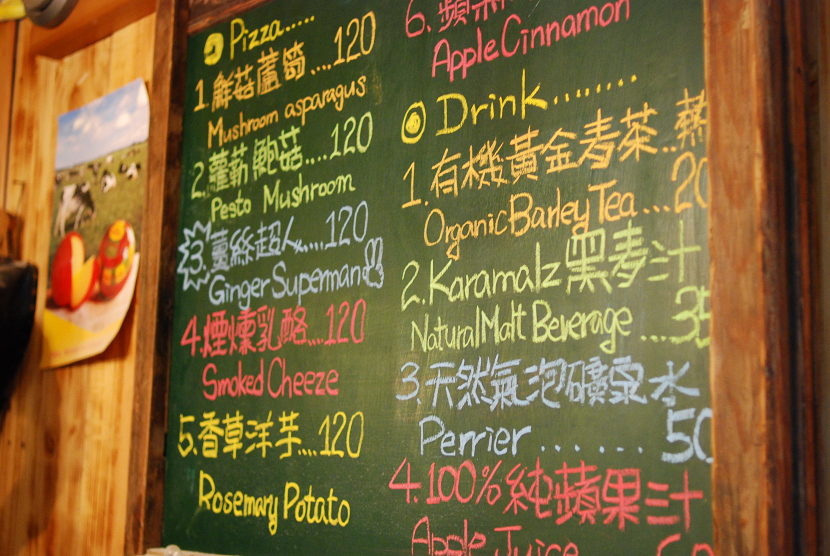 Pizza.....
1.鮮菇蘆筍....120
Mushroom asparagus
2.蘿勒鮑菇....120
Pesto Mushroom
3.薑絲超人....120
Ginger Superman
4.煙燻乳酪....120
Smoked Cheeze
5.香草洋芋....120
Rosemary Potato
6.蘋
Apple Cinnamon
Drink........
1.有機黃金麥茶..熱
Organic Barley Tea...20
2.Karamalz黑麥汁
Natural Malt Beverage ....35
3.天然氣泡礦泉水
Perrier.......50
4.100%純蘋果汁
Apple Juice